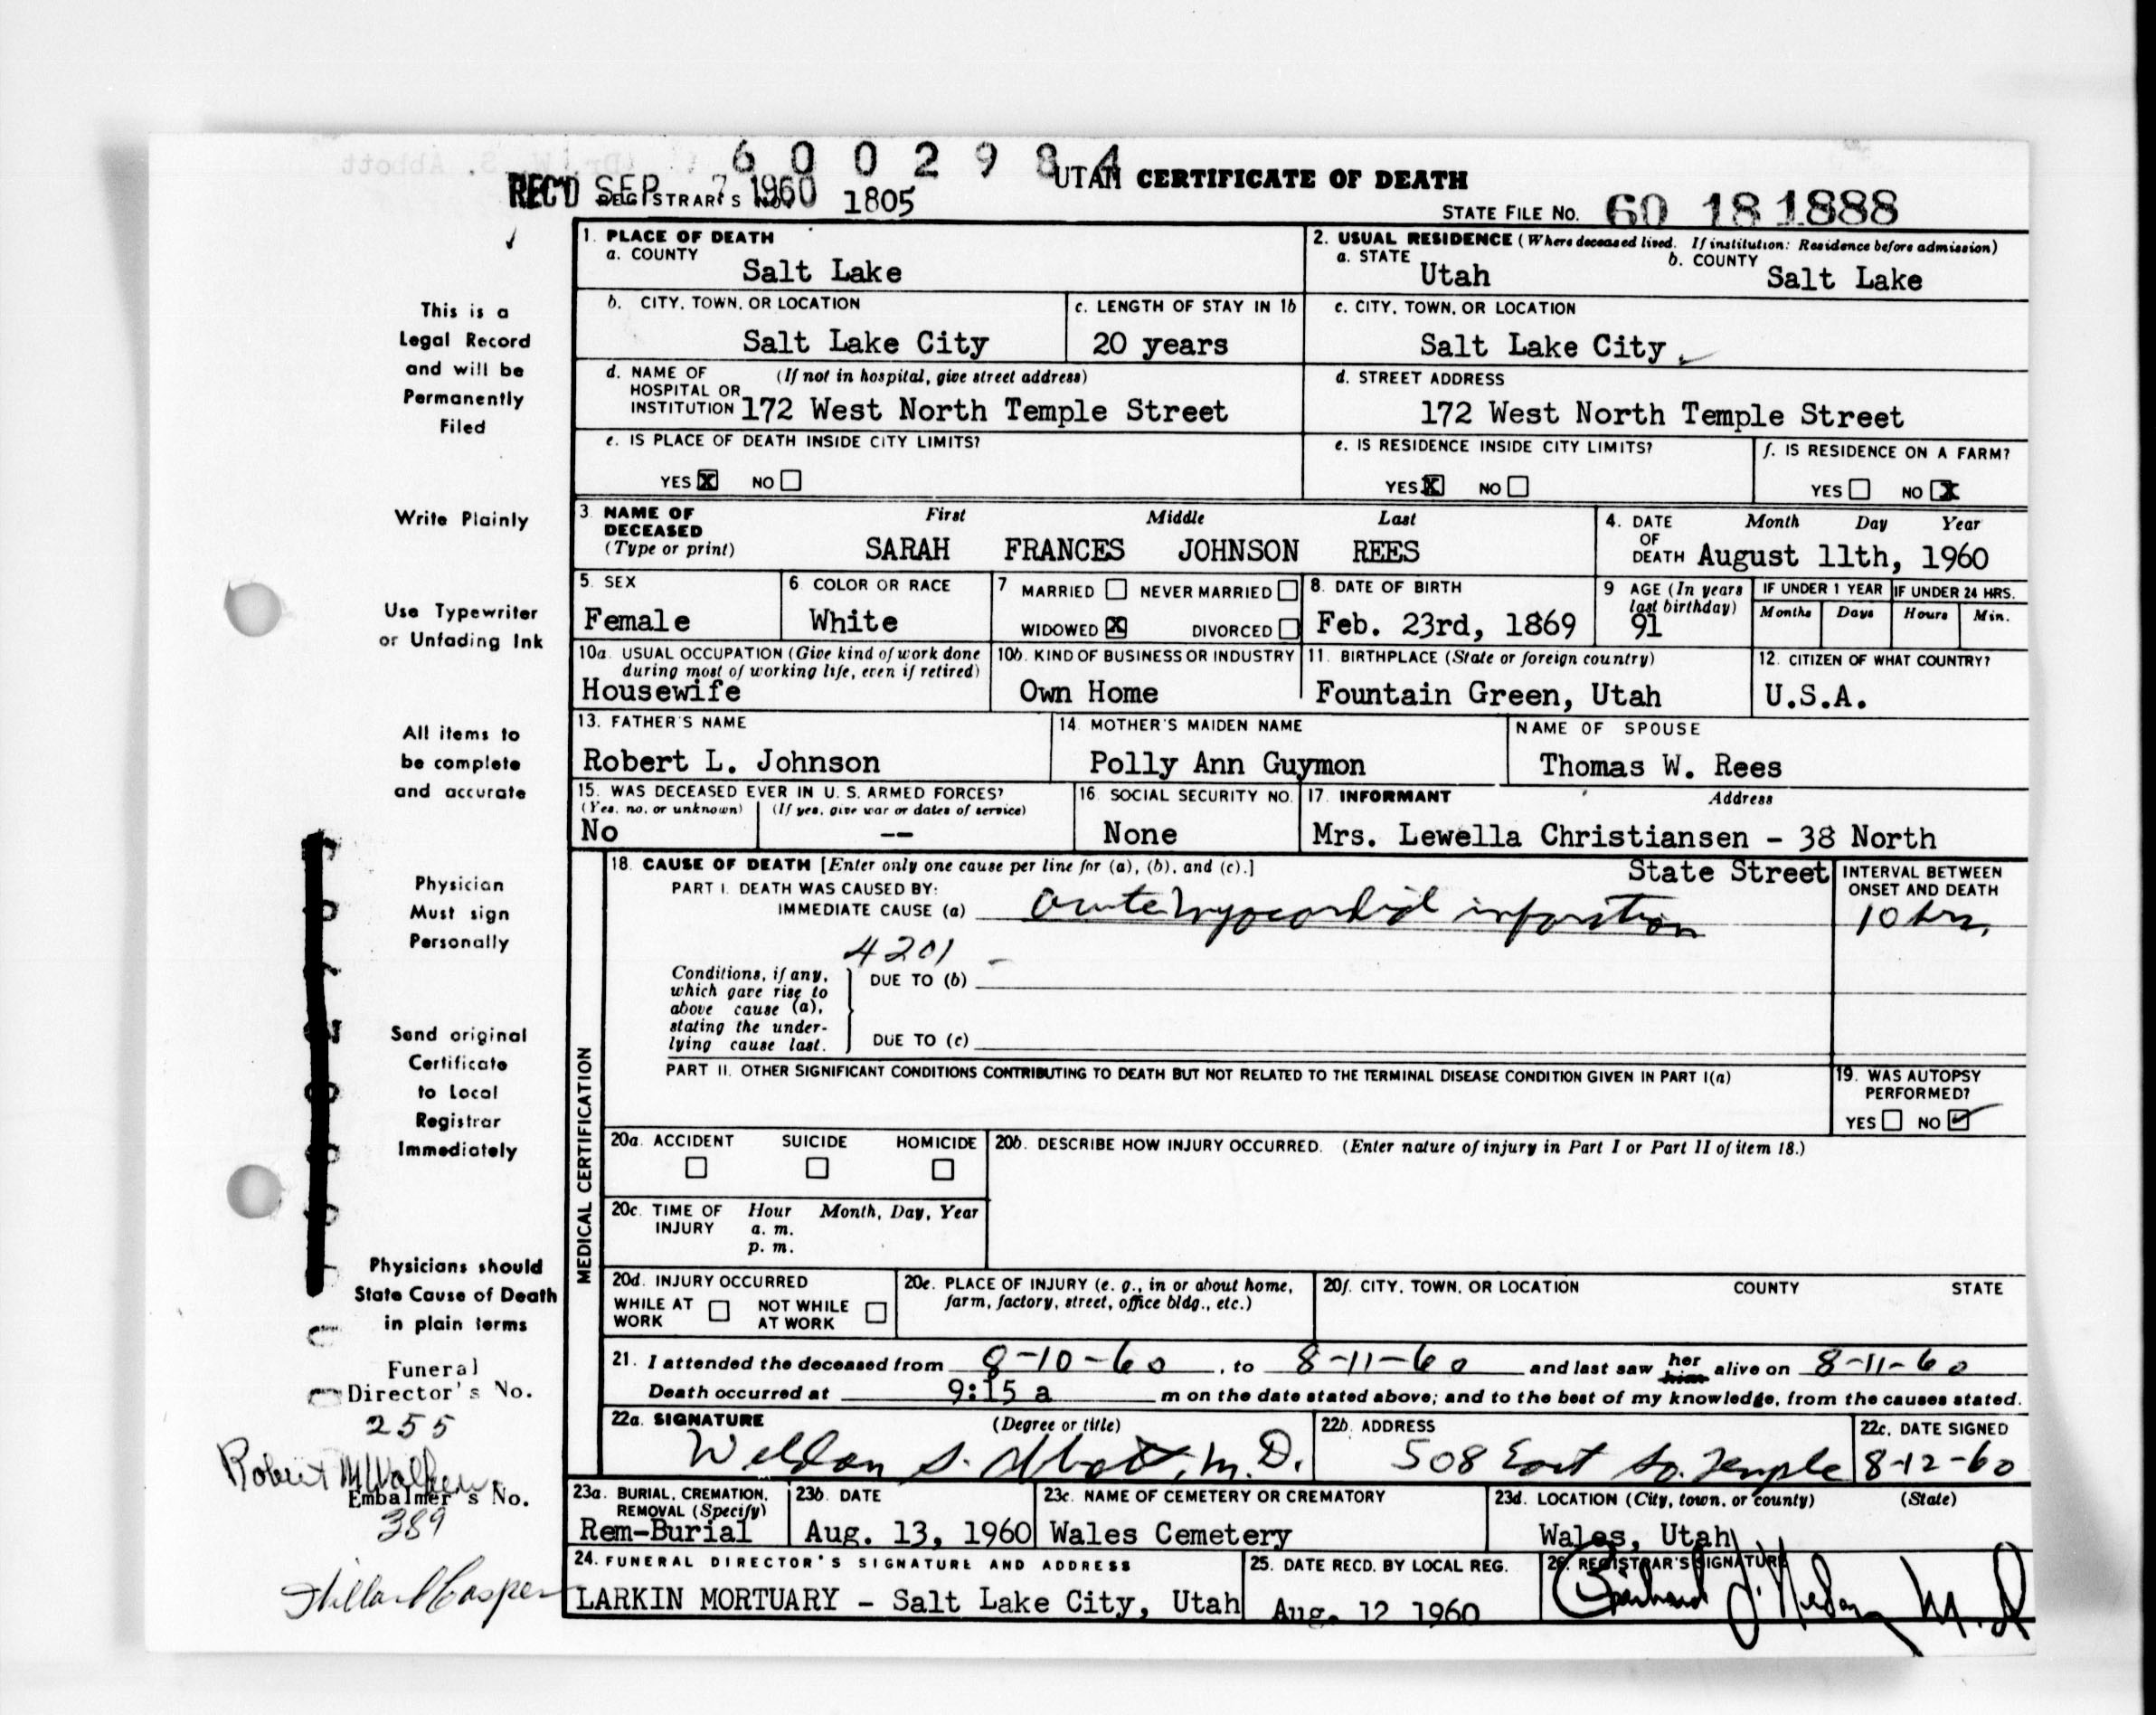 6 0 0 2 9 8 4
UTAH CERTIFICATE OF DEATH
REC'D SEP 7 1960
REGISTRAR'S NO. 1805
STATE FILE NO. 60 18 1888
1. PLACE OF DEATH
a. COUNTY
Salt Lake
2. USUAL RESIDENCE (Where deceased lived. If institution: Residence before admission)
a. STATE
Utah
b. COUNTY
Salt Lake
b. CITY, TOWN, OR LOCATION
Salt Lake City
c. LENGTH OF STAY IN 1b
20 years
c. CITY, TOWN, OR LOCATION
Salt Lake City
d. NAME OF HOSPITAL OR INSTITUTION (If not in hospital, give street address)
172 West North Temple Street
d. STREET ADDRESS
172 West North Temple Street
e. IS PLACE OF DEATH INSIDE CITY LIMITS?
YES X NO
e. IS RESIDENCE INSIDE CITY LIMITS?
YES X NO
f. IS RESIDENCE ON A FARM?
YES NO X
3. NAME OF DECEASED (Type or print)
First Middle Last
SARAH FRANCES JOHNSON REES
4. DATE OF DEATH
Month Day Year
August 11th, 1960
5. SEX
Female
6. COLOR OR RACE
White
7 MARRIED NEVER MARRIED
WIDOWED X DIVORCED
8. DATE OF BIRTH
Feb. 23rd, 1869
9 AGE (In years last birthday)
91
IF UNDER 1 YEAR
Months Days
IF UNDER 24 HRS.
Hours Min.
10a. USUAL OCCUPATION (Give kind of work done during most of working life, even if retired)
Housewife
10b. KIND OF BUSINESS OR INDUSTRY
Own Home
11. BIRTHPLACE (State or foreign country)
Fountain Green, Utah
12. CITIZEN OF WHAT COUNTRY?
U.S.A.
13. FATHER'S NAME
Robert L. Johnson
14. MOTHER'S MAIDEN NAME
Polly Ann Guymon
NAME OF SPOUSE
Thomas W. Rees
15. WAS DECEASED EVER IN U. S. ARMED FORCES?
(Yes, no, or unknown) (If yes, give war or dates of service)
No --
16. SOCIAL SECURITY NO.
None
17. INFORMANT Address
Mrs. Lewella Christiansen - 38 North
State Street
18. CAUSE OF DEATH [Enter only one cause per line for (a), (b), and (c).]
PART I. DEATH WAS CAUSED BY:
IMMEDIATE CAUSE (a) acute myocardial infarction
INTERVAL BETWEEN ONSET AND DEATH
10 hrs.
4201
Conditions, if any, which gave rise to above cause (a), stating the underlying cause last.
DUE TO (b)
DUE TO (c)
PART II. OTHER SIGNIFICANT CONDITIONS CONTRIBUTING TO DEATH BUT NOT RELATED TO THE TERMINAL DISEASE CONDITION GIVEN IN PART I(a)
19. WAS AUTOPSY PERFORMED?
YES NO ✓
MEDICAL CERTIFICATION
20a. ACCIDENT SUICIDE HOMICIDE
20b. DESCRIBE HOW INJURY OCCURRED. (Enter nature of injury in Part I or Part II of item 18.)
20c. TIME OF INJURY Hour a. m. p. m. Month, Day, Year
20d. INJURY OCCURRED
WHILE AT WORK NOT WHILE AT WORK
20e. PLACE OF INJURY (e. g., in or about home, farm, factory, street, office bldg., etc.)
20f. CITY, TOWN, OR LOCATION COUNTY STATE
21. I attended the deceased from 8-10-60, to 8-11-60 and last saw her him alive on 8-11-60
Death occurred at 9:15 a m on the date stated above; and to the best of my knowledge, from the causes stated.
22a. SIGNATURE (Degree or title)
Weldon S. Abbott, M. D.
22b. ADDRESS
508 East So. Temple
22c. DATE SIGNED
8-12-60
23a. BURIAL, CREMATION, REMOVAL (Specify)
Rem-Burial
23b. DATE
Aug. 13, 1960
23c. NAME OF CEMETERY OR CREMATORY
Wales Cemetery
23d. LOCATION (City, town, or county) (State)
Wales, Utah
24. FUNERAL DIRECTOR'S SIGNATURE AND ADDRESS
LARKIN MORTUARY - Salt Lake City, Utah
25. DATE RECD. BY LOCAL REG.
Aug. 12 1960
26. REGISTRAR'S SIGNATURE
This is a
Legal Record
and will be
Permanently
Filed
Write Plainly
Use Typewriter
or Unfading Ink
All items to
be complete
and accurate
Physician
Must sign
Personally
Send original
Certificate
to Local
Registrar
Immediately
Physicians should
State Cause of Death
in plain terms
Funeral
Director's No.
255
Robert M Walker
Embalmer's No.
389